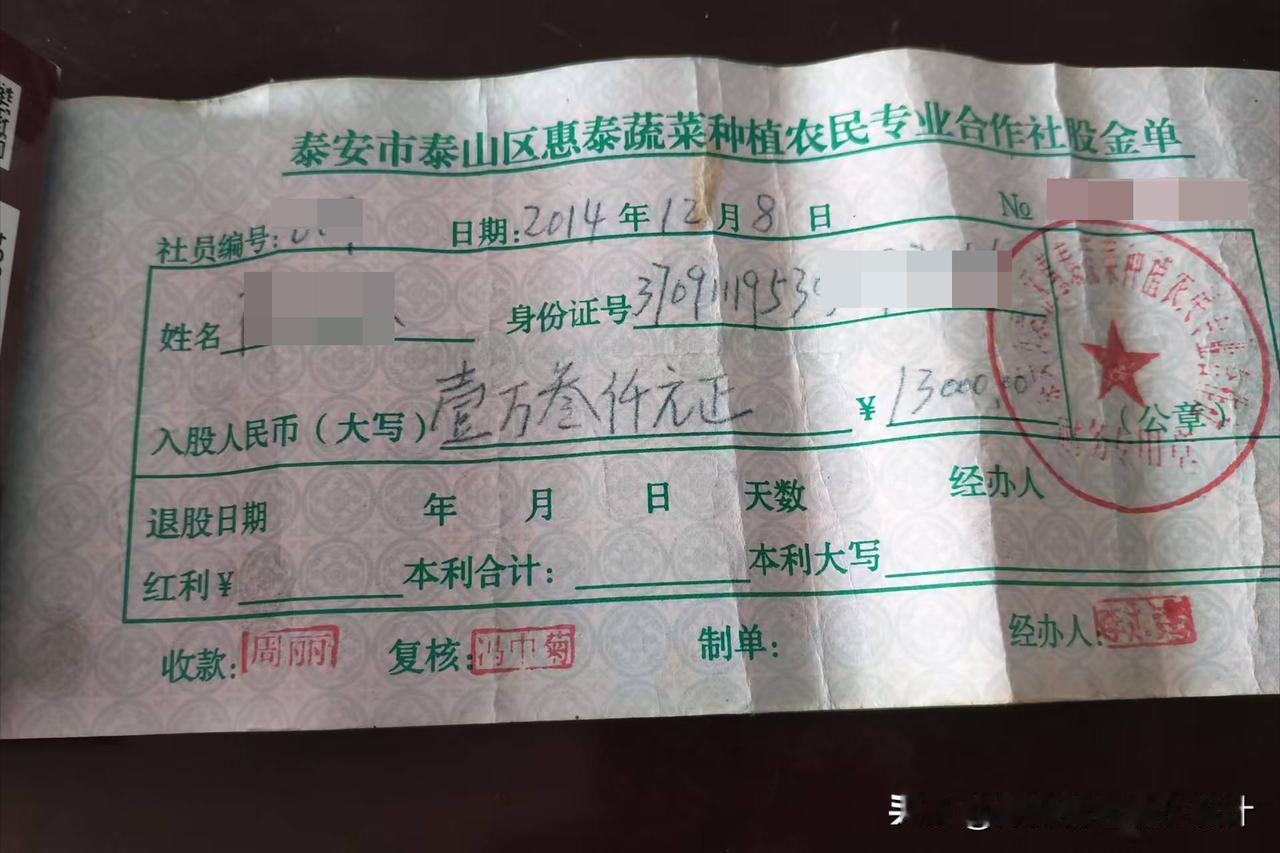 泰安市泰山区惠泰蔬菜种植农民专业合作社股金单
社员编号: 日期:2014年12月8日 №
姓名 身份证号3709111953
入股人民币（大写）壹万叁仟元正 ¥13000.00 （公章）
财务专用章
退股日期 年 月 日 天数 经办人
红利¥ 本利合计: 本利大写
收款:周丽 复核:冯巾菊 制单: 经办人: